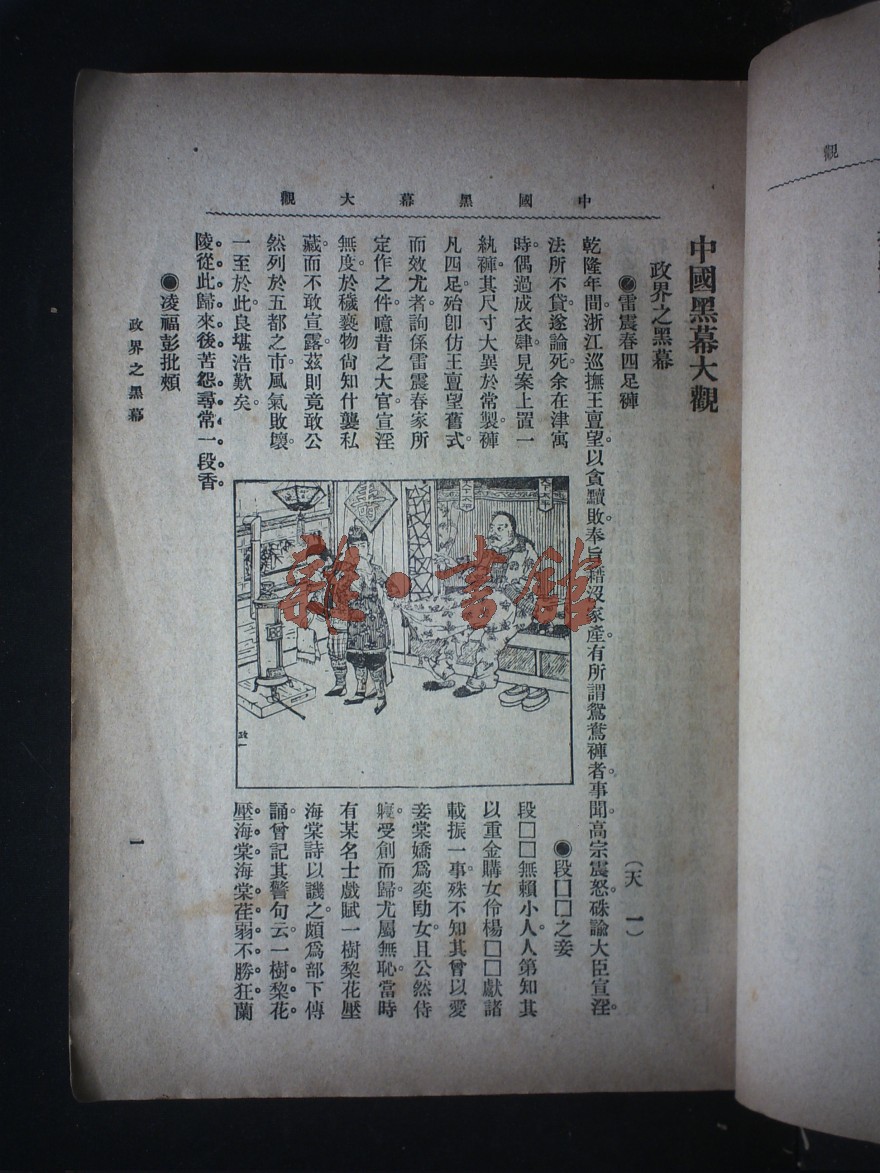 中國黑幕大觀
觀
中國黑幕大觀
政界之黑幕
●雷震春四足褲
(天一)
乾隆年間浙江巡撫王亶望以貪黷敗。奉旨籍沒家產。有所謂鴛鴦褲者。事聞。高宗震怒。硃諭大臣宣淫。
法所不貸。遂論死。余在津寓
時。偶過成衣肆。見案上置一
紈褲。其尺寸大異於常製。褲
凡四足。殆卽仿王亶望舊式
而效尤者。詢係雷震春家所
定作之件。噫昔之大官宣淫
無度。於穢褻物尙知什襲私
藏。而不敢宣露。茲則竟敢公
然列於五都之市。風氣敗壞
一至於此。良堪浩歎矣。
政一
●段□□之妾
段□□無賴小人。人第知其
以重金購女伶楊□□獻諸
載振一事。殊不知其曾以愛
妾棠嬌爲奕劻女。且公然侍
寢。受創而歸。尤屬無恥。當時
有某名士戲賦一樹梨花壓
海棠詩以譏之。頗爲部下傳
誦。曾記其警句云。一樹梨花
壓海棠。海棠荏弱不勝狂。蘭
陵從此歸來後。苦怨尋常一段香。
●凌福彭批頰
政界之黑幕
一
雜·書館